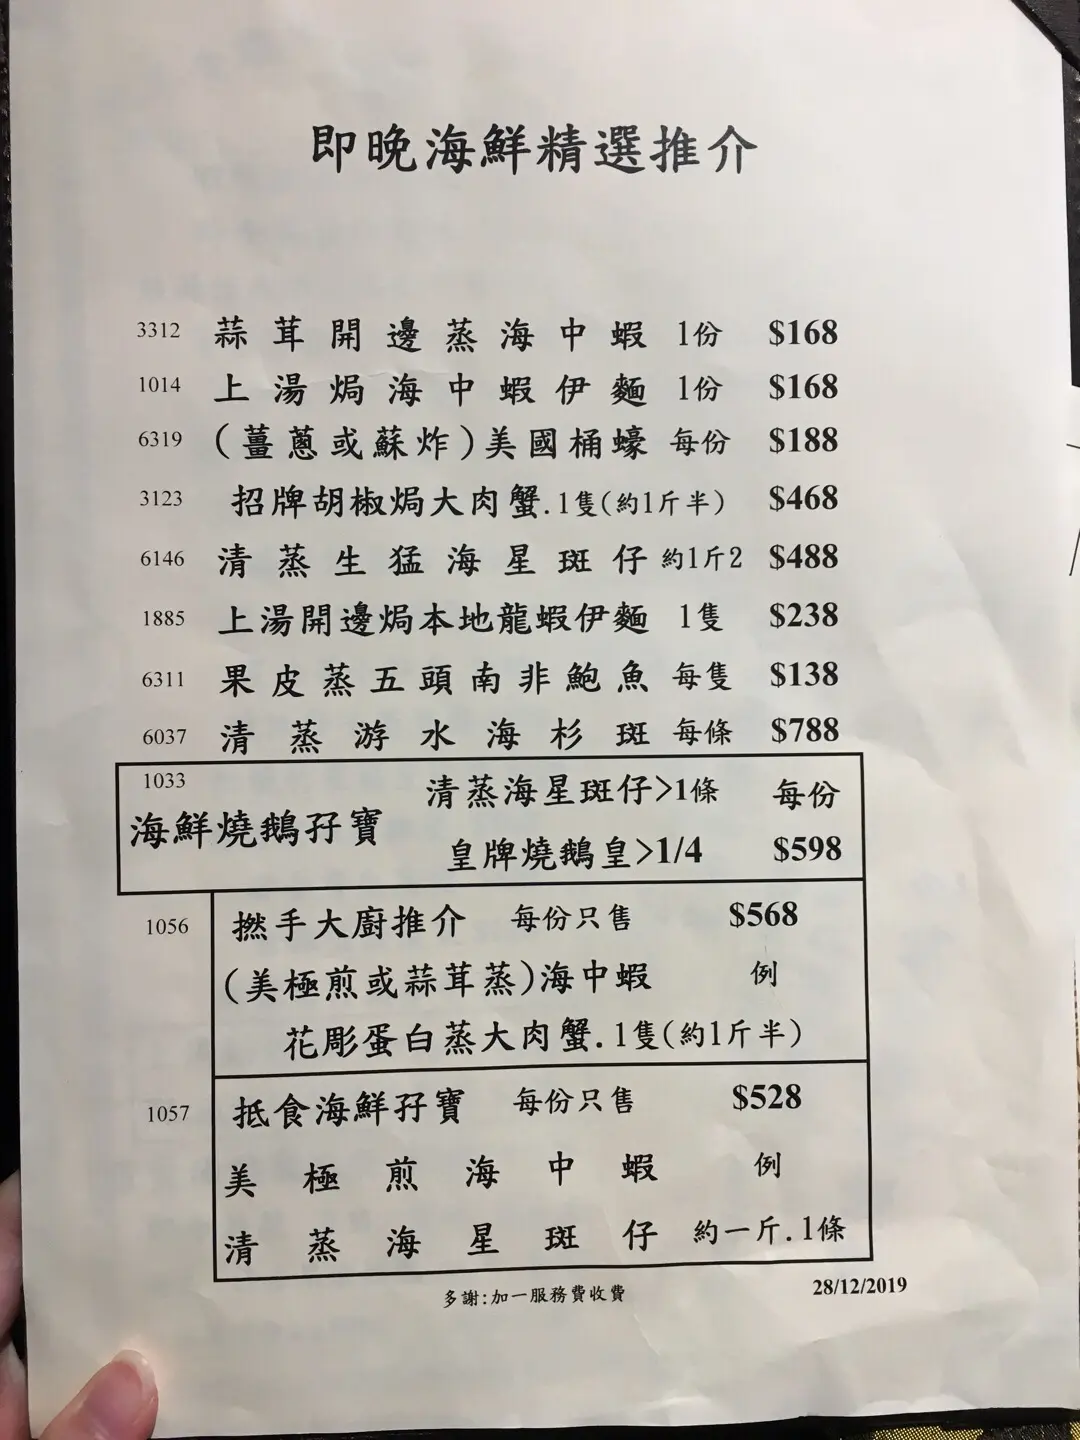 即晚海鮮精選推介
3312 蒜茸開邊蒸海中蝦 1份 $168
1014 上湯焗海中蝦伊麵 1份 $168
6319 (薑蔥或蘇炸)美國桶蠔 每份 $188
3123 招牌胡椒焗大肉蟹.1隻(約1斤半) $468
6146 清蒸生猛海星斑仔 約1斤2 $488
1885 上湯開邊焗本地龍蝦伊麵 1隻 $238
6311 果皮蒸五頭南非鮑魚 每隻 $138
6037 清蒸游水海杉斑 每條 $788
1033 清蒸海星斑仔>1條 每份
海鮮燒鵝孖寶
皇牌燒鵝皇>1/4 $598
1056 撚手大廚推介 每份只售 $568
(美極煎或蒜茸蒸)海中蝦 例
花彫蛋白蒸大肉蟹.1隻(約1斤半)
1057 抵食海鮮孖寶 每份只售 $528
美極煎海中蝦 例
清蒸海星斑仔 約一斤.1條
多謝:加一服務費收費 28/12/2019